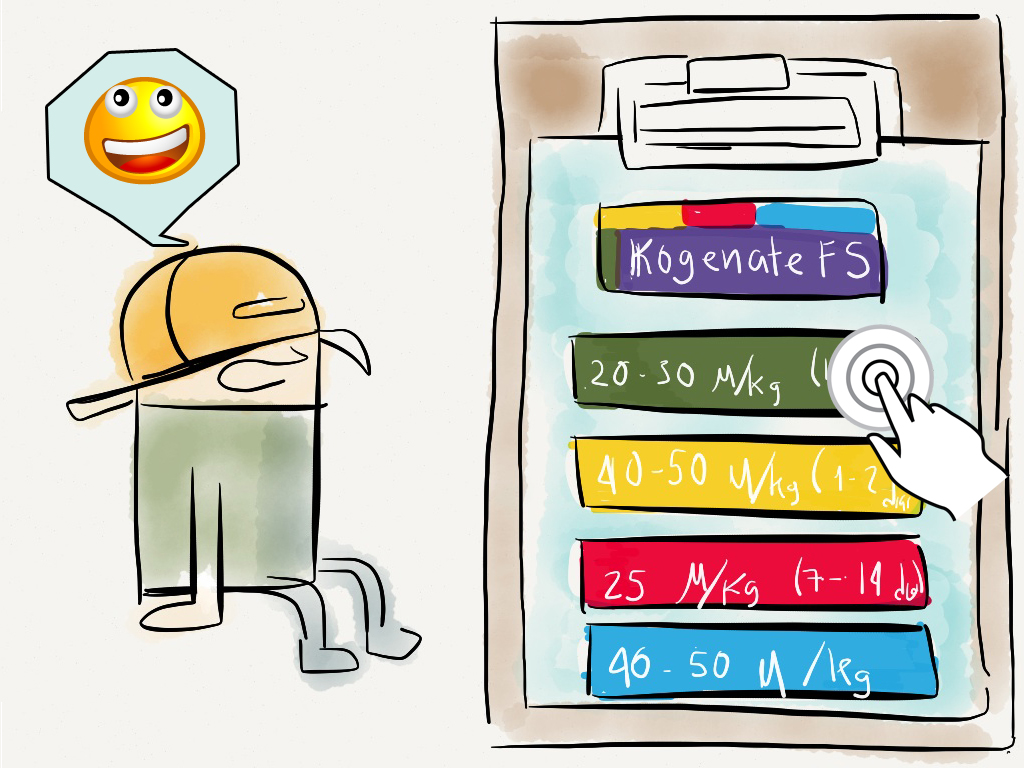 Kogenate FS
20-30 U/kg (1
40-50 U/kg (1-2
25 U/kg (7-14 dia)
40-50 U/kg